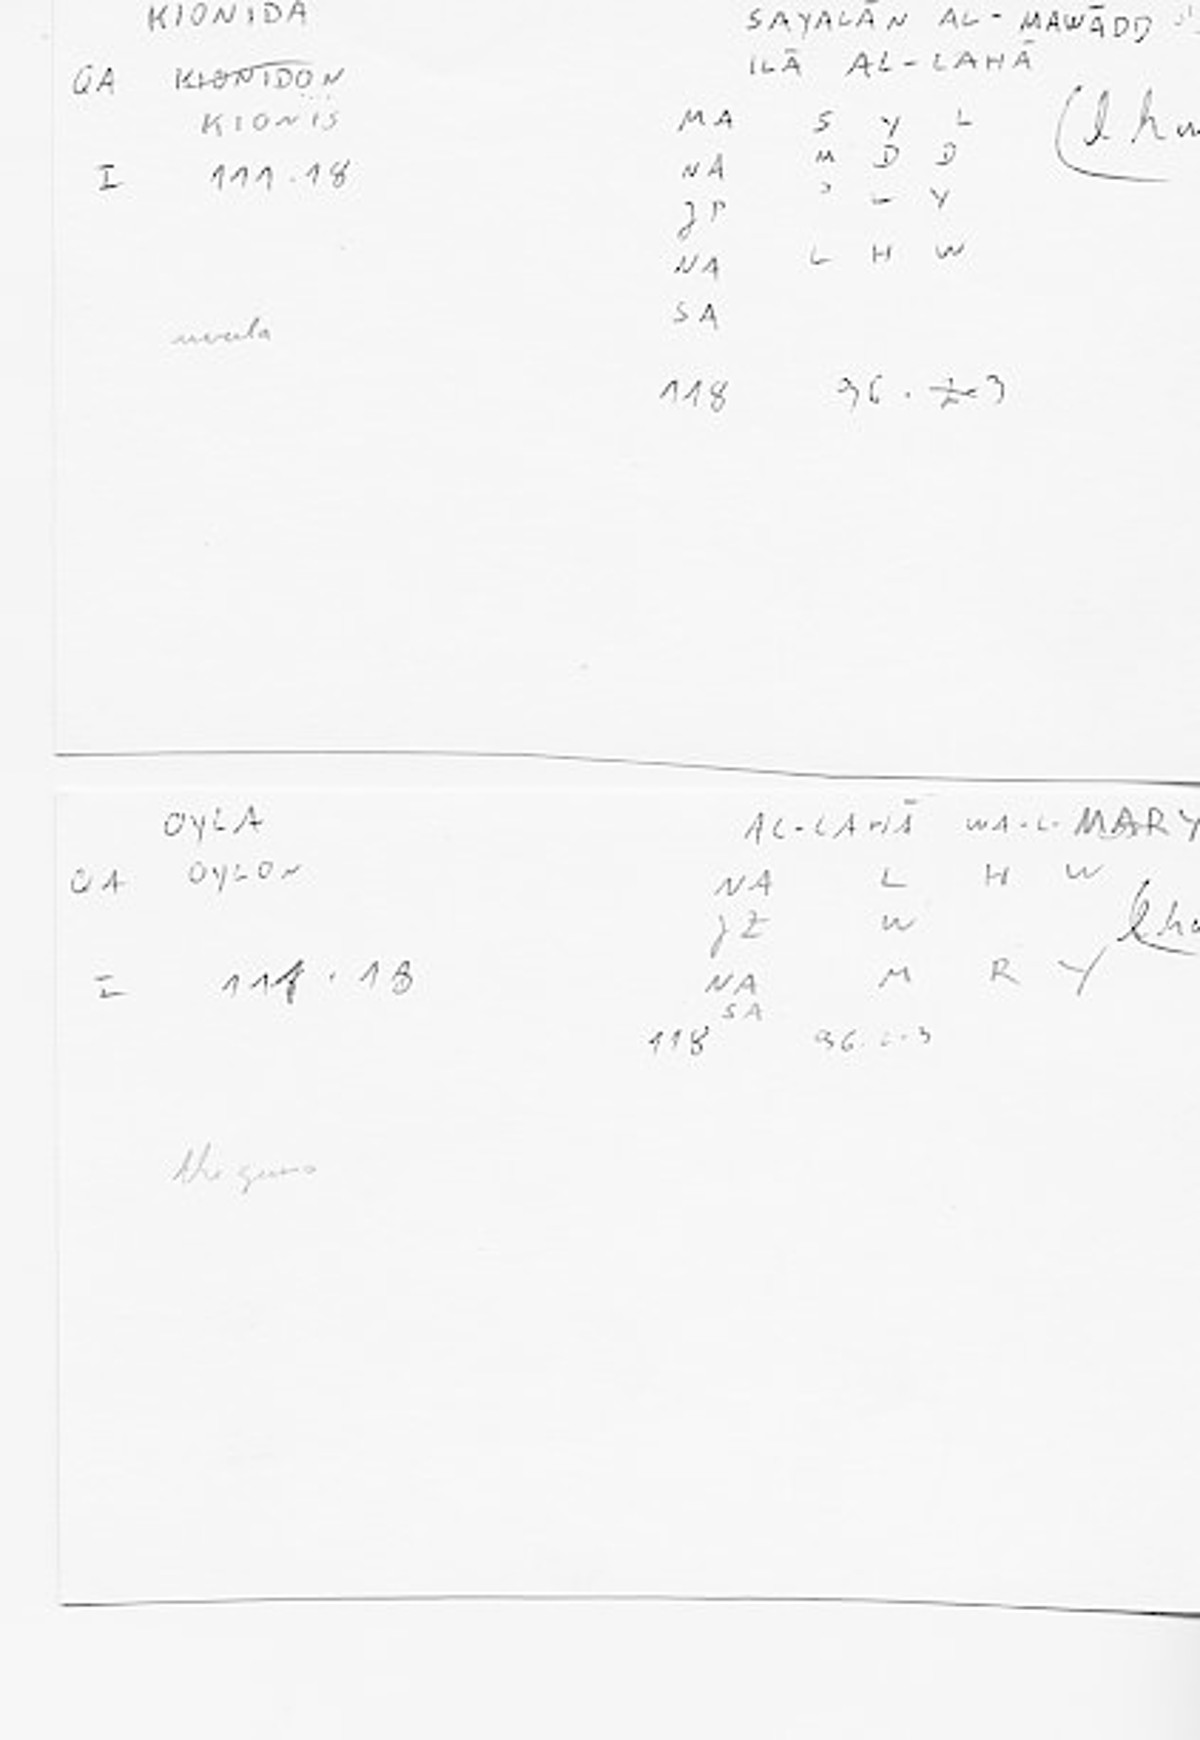 KIONIDA
QA KIONIDON
KIONIS
I 111.18
uvula
SAYALĀN AL-MAWĀDD
ILĀ AL-LAHĀ
MA S Y L
NA M D D
JP ʾ L Y
NA L H W
SA
118 96.3
OYLA
QA OYLON
I 111.18
the gums
AL-LAHĀ WA-L-MARY
NA L H W
JZ W
NA M R Y
SA
118 96.2-3